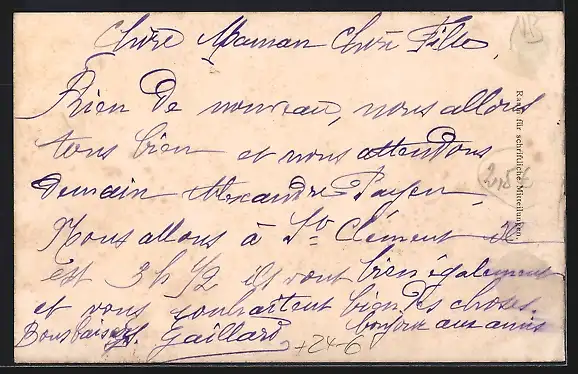 Chère Maman Chère Fille,
Rien de nouveau, nous allons
tous bien et nous attendons
demain Alexandre Payen,
Nous allons à St Clément il
est 3 h 1/2 ils vont bien également
et vous souhaitent bien des choses.
Bons baisers Gaillard bonjour aux amis
+24-6
Raum für schriftliche Mitteilungen.